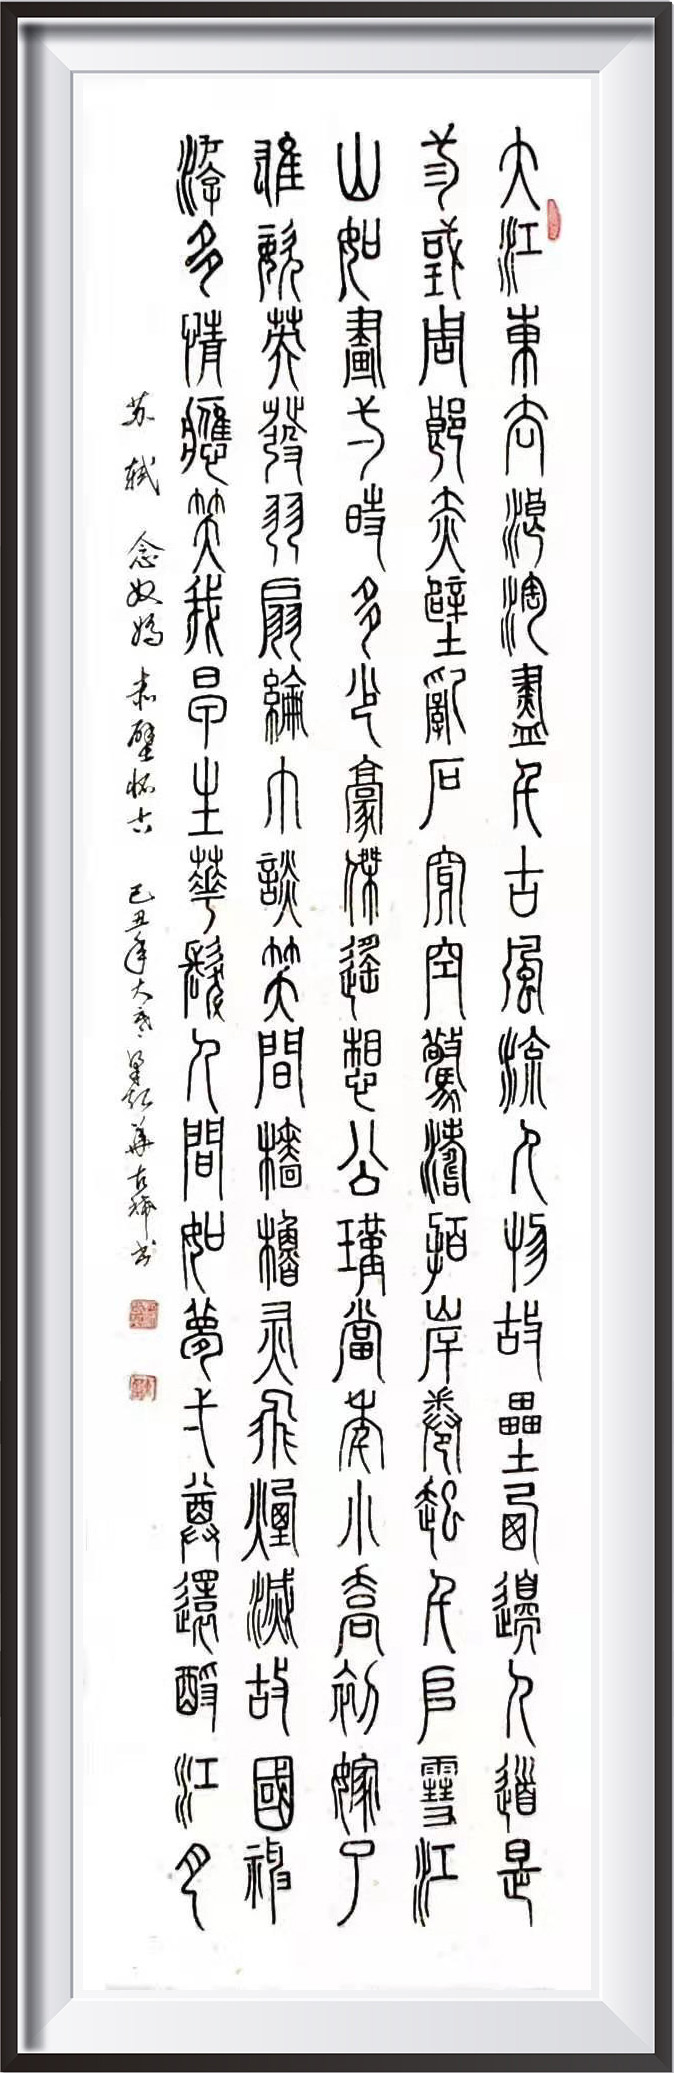 大江東去浪淘盡千古風流人物故壘西邊人道是
三國周郎赤壁亂石穿空驚濤拍岸卷起千堆雪江
山如畫一時多少豪傑遙想公瑾當年小喬初嫁了
雄姿英發羽扇綸巾談笑間檣櫓灰飛煙滅故國神
游多情應笑我早生華髮人間如夢一尊還酹江月
苏轼 念奴娇 赤壁怀古 己丑年大寒 華古稀书